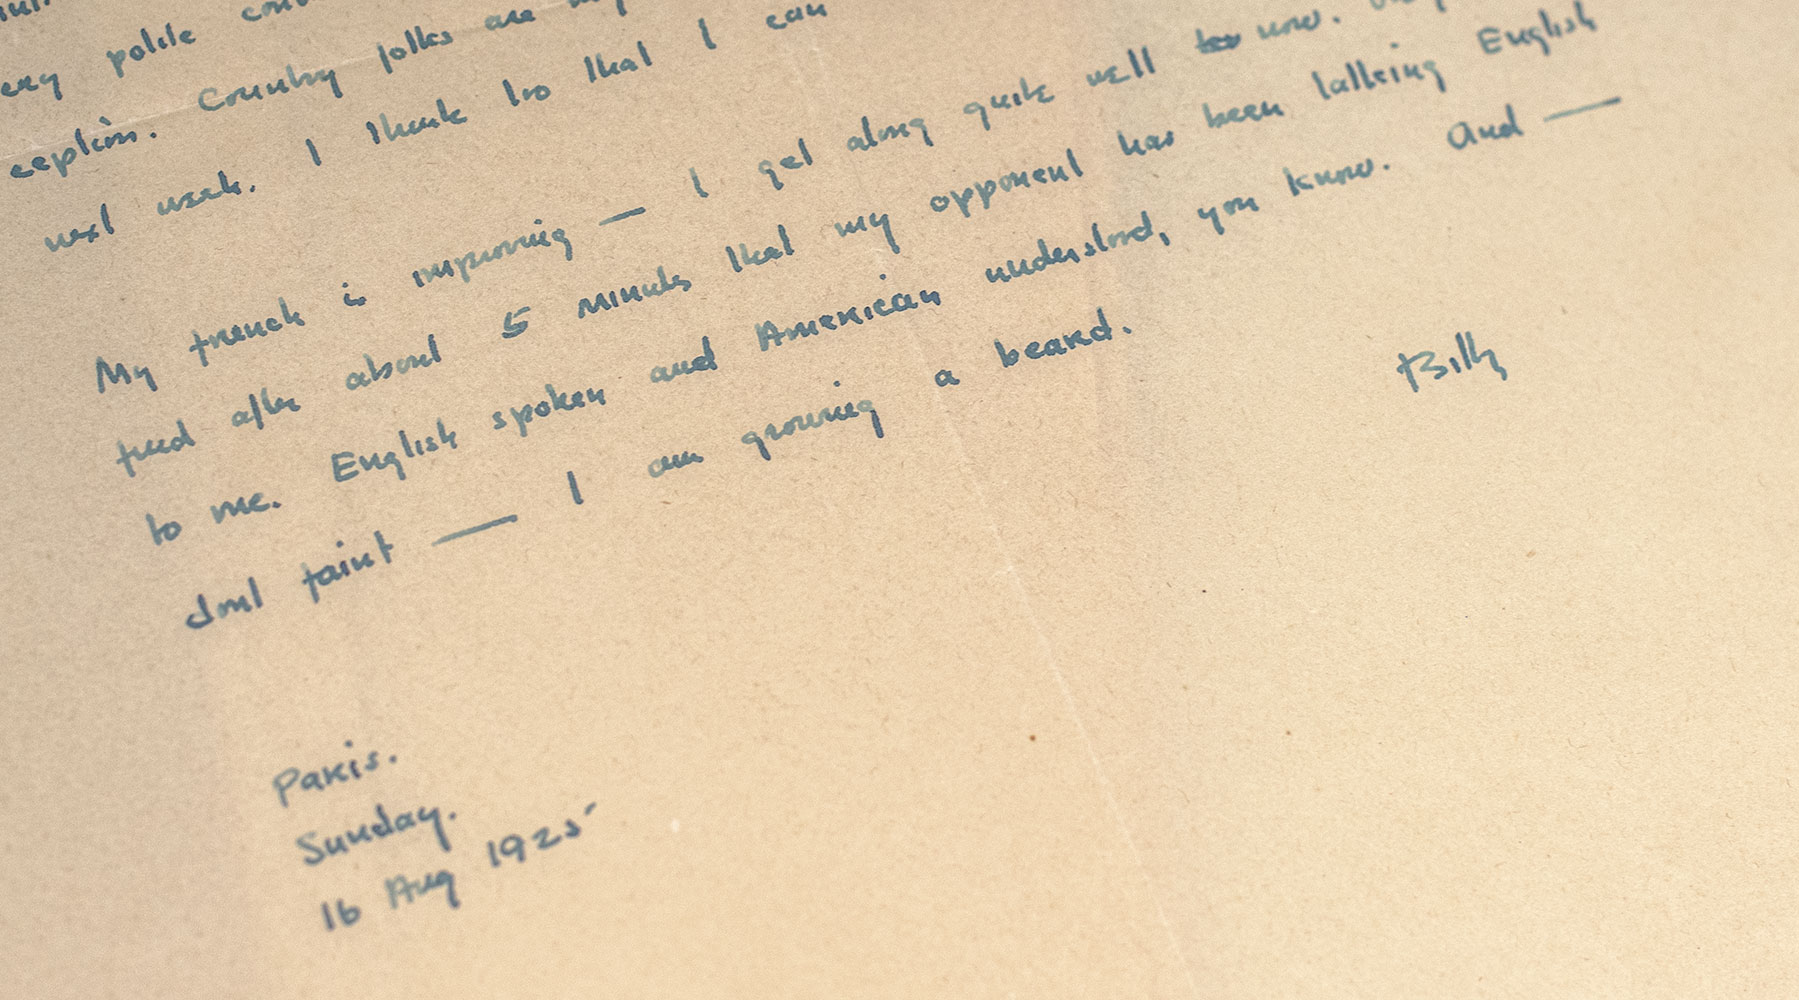 polite
eeption. Country folks are
next week. I think tho that I can
My french is improving — I get along quite well now.
find after about 5 minutes that my opponent has been talking English
to me. English spoken and American understood, you know. And —
dont faint — I am growing a beard.
Billy
Paris.
Sunday.
16 Aug 1925